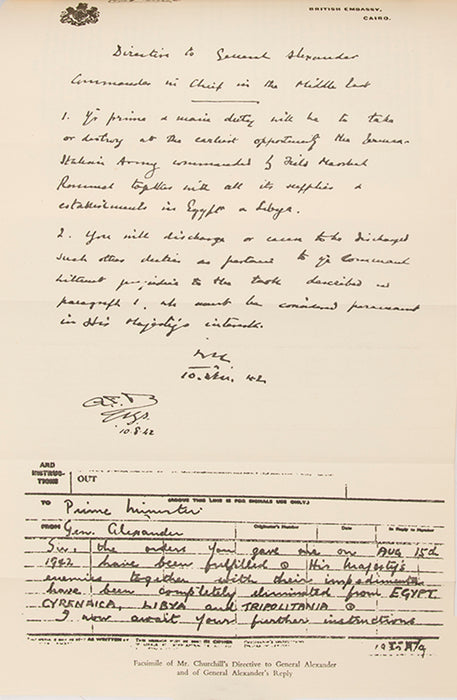 BRITISH EMBASSY,
CAIRO.
Directive to General Alexander
Commander in Chief in the Middle East
1. Yr prime & main duty will be to take
or destroy at the earliest opportunity the German-
Italian Army commanded by Field Marshal
Rommel together with all its supplies &
establishments in Egypt & Libya.
2. You will discharge or cause to be discharged
such other duties as pertain to yr Command
without prejudice to the task described in
paragraph 1, wh must be considered paramount
in His Majesty's interests.
10.
42
10.8.42
AND
INSTRUC-
TIONS
OUT
(ABOVE THIS LINE IS FOR SIGNALS USE ONLY.)
TO Prime Minister
FROM Gen. Alexander Originator's Number Date In Reply to Number
Sir, the orders you gave me on AUG 15th
1942 have been fulfilled His Majesty's
enemies together with their impedimenta
have been completely eliminated from EGYPT
CYRENAICA, LIBYA and TRIPOLITANIA
I now await your further instructions
Facsimile of Mr. Churchill's Directive to General Alexander
and of General Alexander's Reply